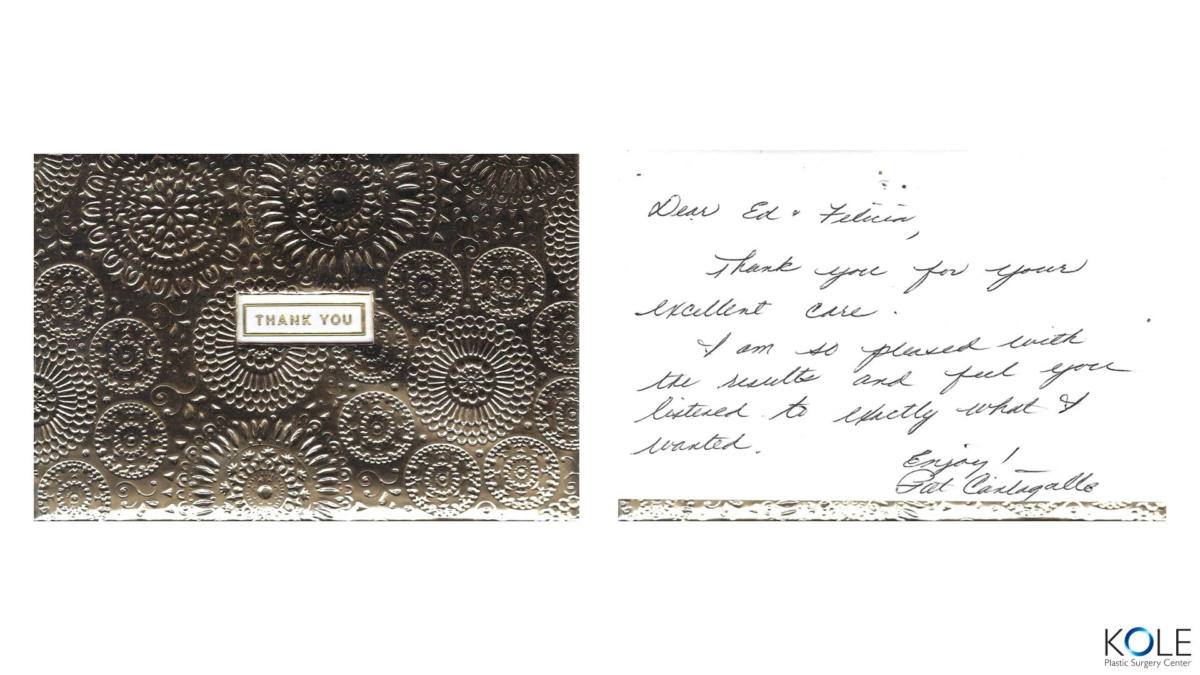 THANK YOU
Dear Ed & Felicia,
Thank you for your
excellent care.
I am so pleased with
the results and feel you
listened to exactly what I
wanted.
Enjoy!
Pat
KOLE
Plastic Surgery Center